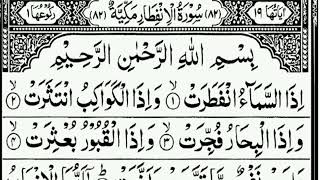 اٰیَاتُهَا ١٩ (٨٢) سُوْرَةُ الْاِنْفِطَارِ مَكِّیَّةٌ (٨٢) رُكُوْعُهَا ١
بِسْمِ اللّٰهِ الرَّحْمٰنِ الرَّحِیْمِ
اِذَا السَّمَآءُ انْفَطَرَتْ ۙ﴿١﴾ وَاِذَا الْكَوَاكِبُ انْتَثَرَتْ ۙ﴿٢﴾
وَاِذَا الْبِحَارُ فُجِّرَتْ ۙ﴿٣﴾ وَاِذَا الْقُبُوْرُ بُعْثِرَتْ ۙ﴿٤﴾